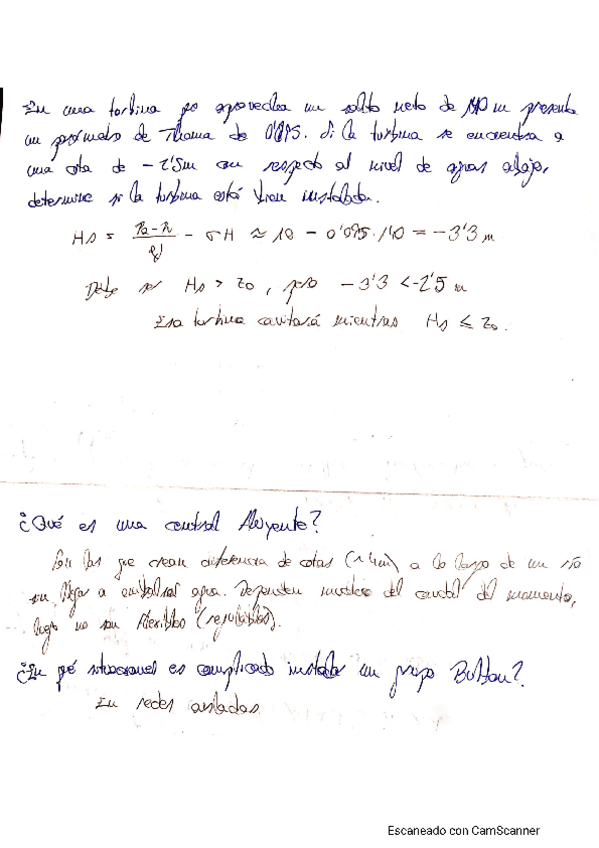 En una turbina que aprovecha un salto neto de 140 m presenta
un parámetro de Thoma de 0'095. Si la turbina se encuentra a
una cota de -2'5m con respecto al nivel de aguas abajo,
determine si la turbina está bien instalada.
Hs = Pa-Pv / ρg - σH ≈ 10 - 0'095·140 = -3'3 m
Debe ser Hs > Zo, pero -3'3 < -2'5 m
Esa turbina cavitará mientras Hs ≤ Zo.
¿Qué es una central fluyente?
Son las que crean diferencia de cotas (~4m) a lo largo de un río
sin llegar a embalsar agua. Dependen mucho del caudal del momento,
luego no son flexibles (regulables).
¿En qué situaciones es complicado instalar un grupo Bulbo?
En redes aisladas
Escaneado con CamScanner